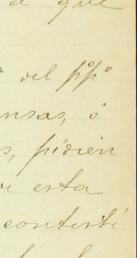 a que
del pº pº
ensas, ó
s, pidien
esta
contesté